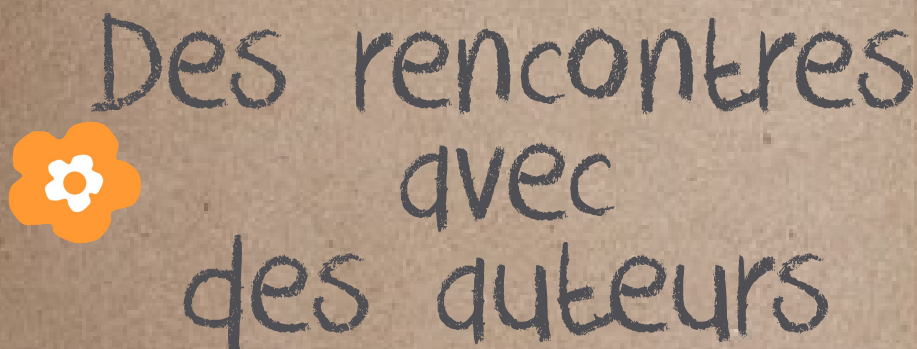 Des rencontres
avec
des auteurs